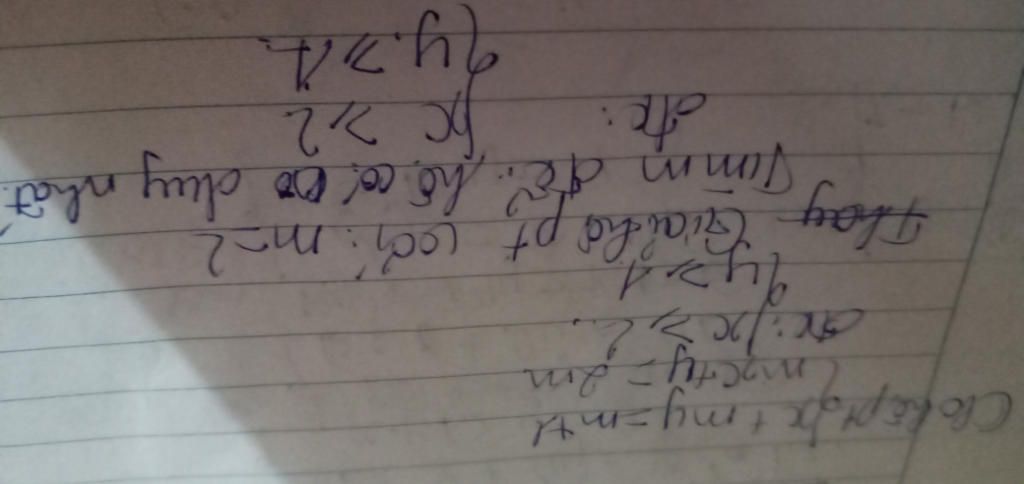 Cho hệ pt { x + my = m+1
{ mx + y = 2m
đk: { x ≥ 2.
{ y ≥ 1
Thay Giải hệ pt với: m = 2
Tìm m để: hệ có no duy nhất.
đk: { x ≥ 2
{ y ≥ 1.